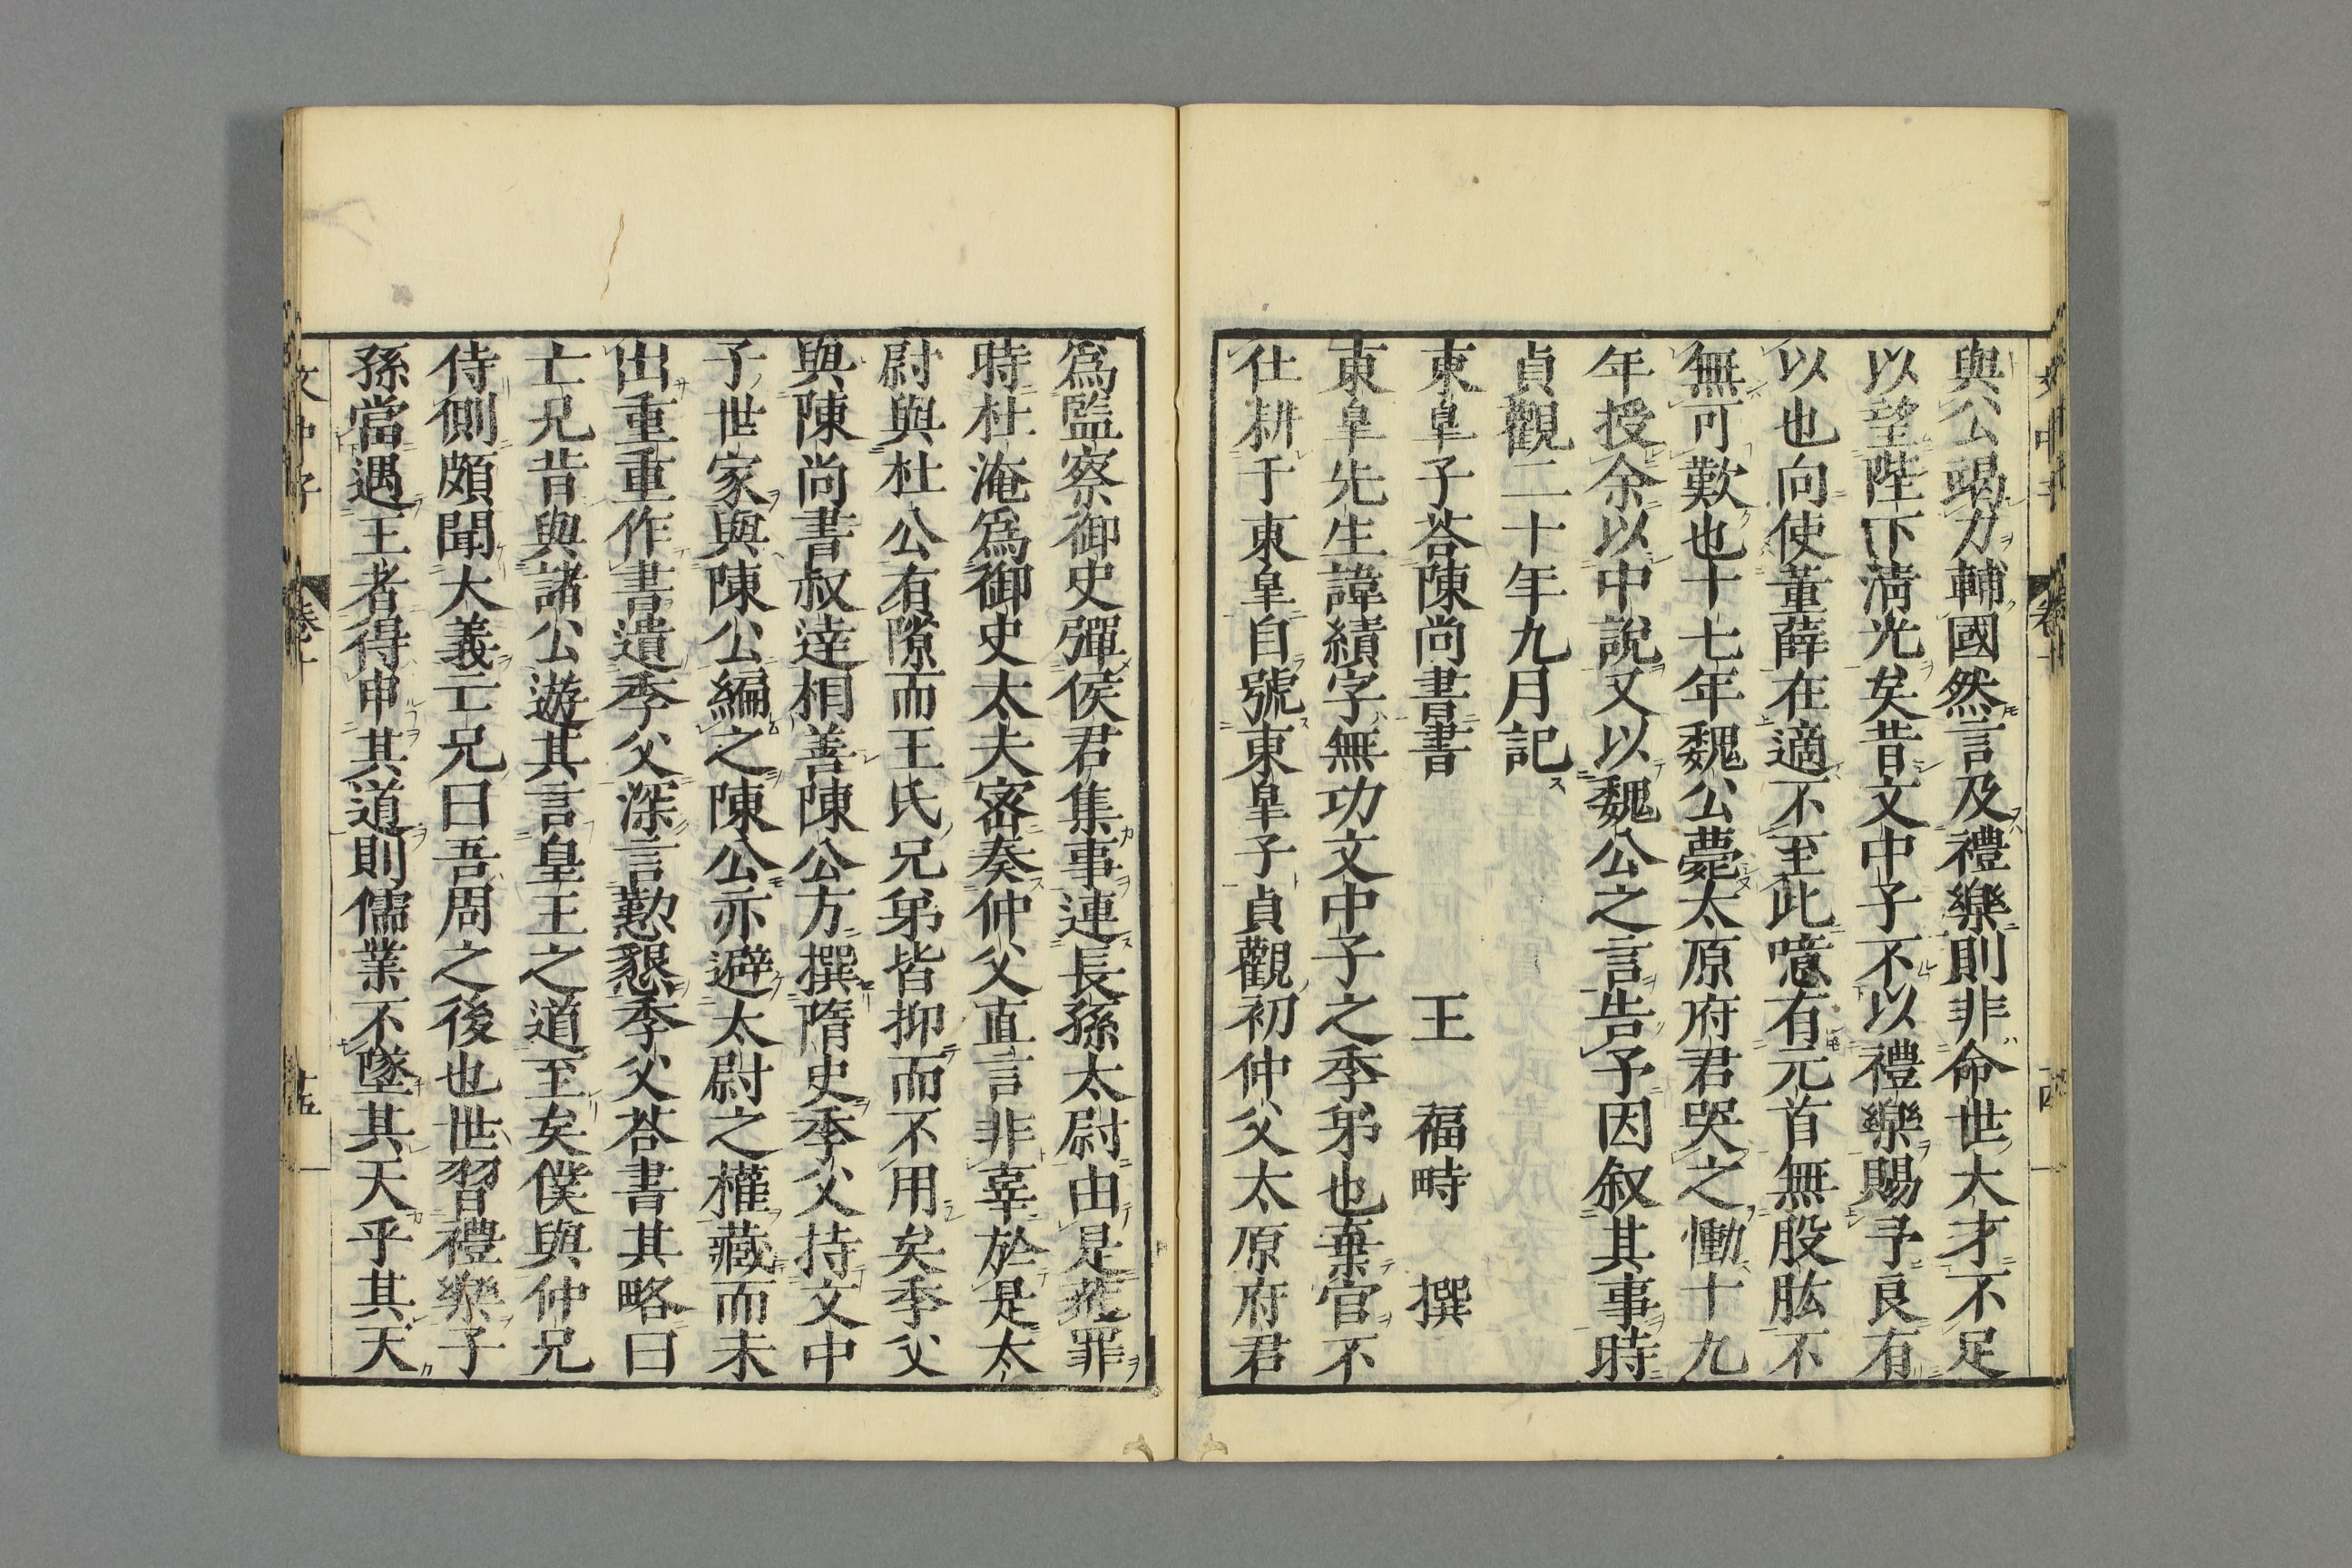 與公竭力輔國然言及禮樂則非命世大才不足
以望陛下清光矣昔文中子不以禮樂賜予良有
以也向使董薛在適不至此噫有元首無股肱不
無可歎也十七年魏公薨太原府君哭之慟十九
年授余以中說又以魏公之言告予因叙其事時
貞觀二十年九月記
東皐子荅陳尚書書　王　福畤　撰
東皐先生諱績字無功文中子之季弟也棄官不
仕耕于東皐自號東皐子貞觀初仲父太原府君
爲監察御史彈侯君集事連長孫太尉由是獲罪
時杜淹爲御史太夫密奏仲父直言非辜於是太
尉與杜公有隙而王氏兄弟皆抑而不用矣季父
與陳尚書叔達相善陳公方撰隋史季父持文中
子世家與陳公編之陳公亦避太尉之權藏而未
出重重作書遺季父深言懃懇季父荅書其略曰
亡兄昔與諸公遊其言皇王之道至矣僕與仲兄
侍側頗聞大義亡兄曰吾周之後也世習禮樂子
孫當遇王者得申其道則儒業不墜其天乎其天
文中子　卷十　十五